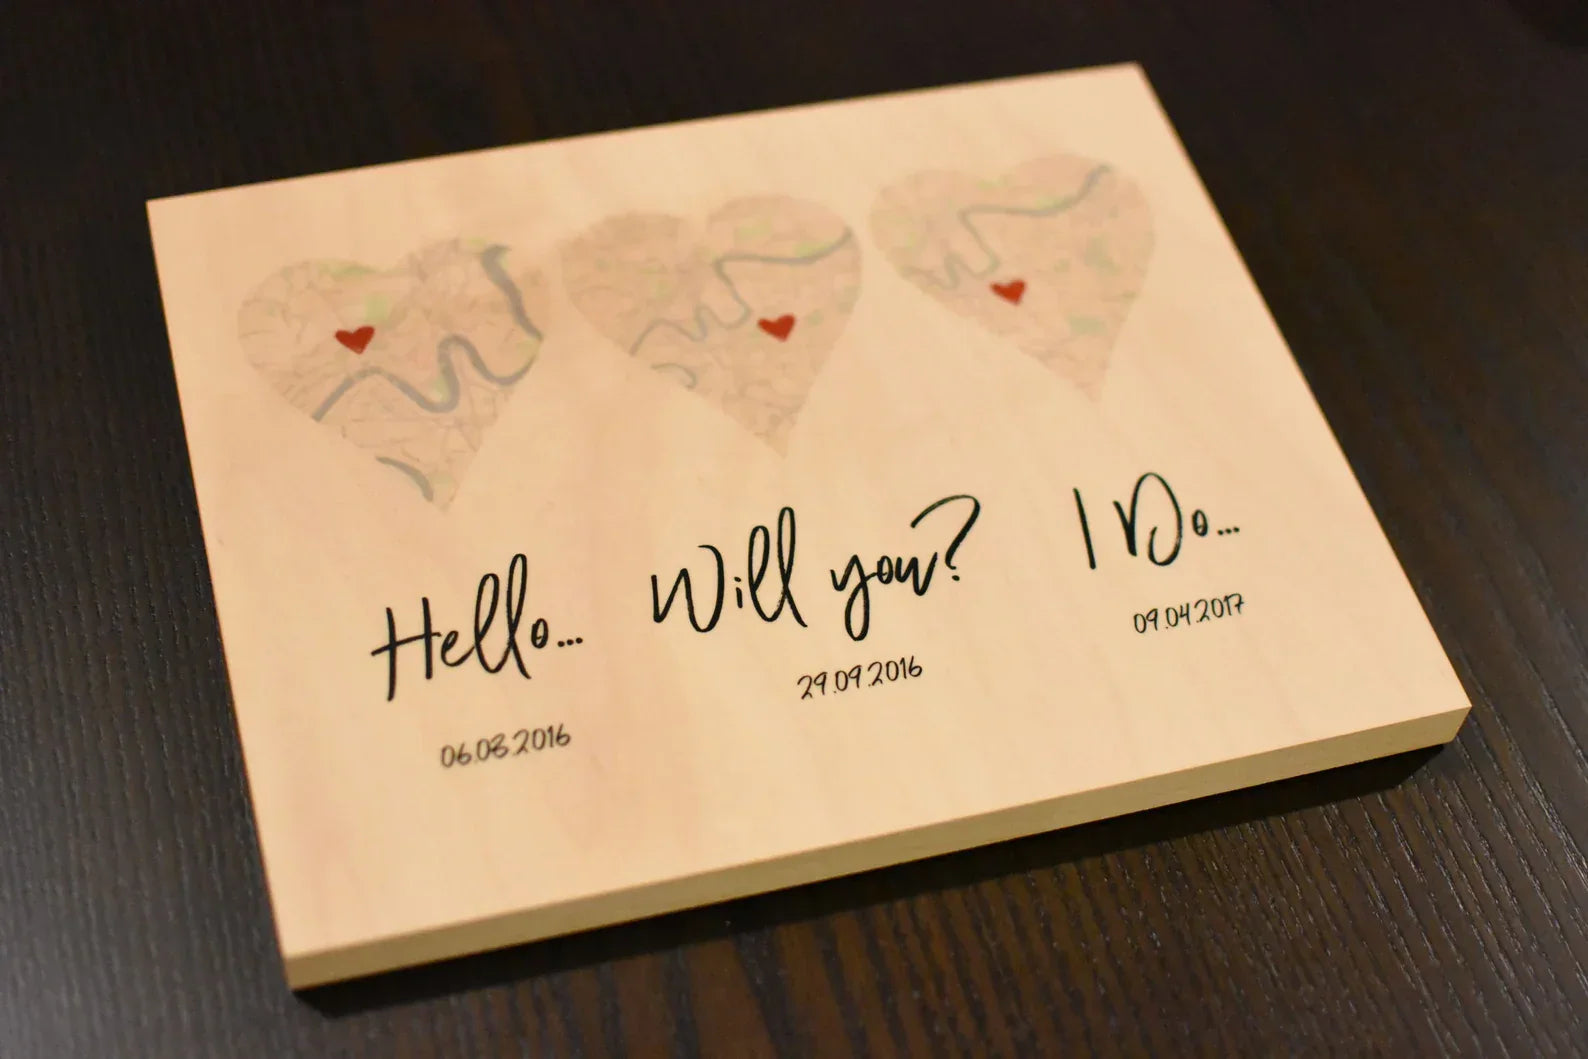 Hello...
06.08.2016
Will you?
29.09.2016
I Do...
09.04.2017